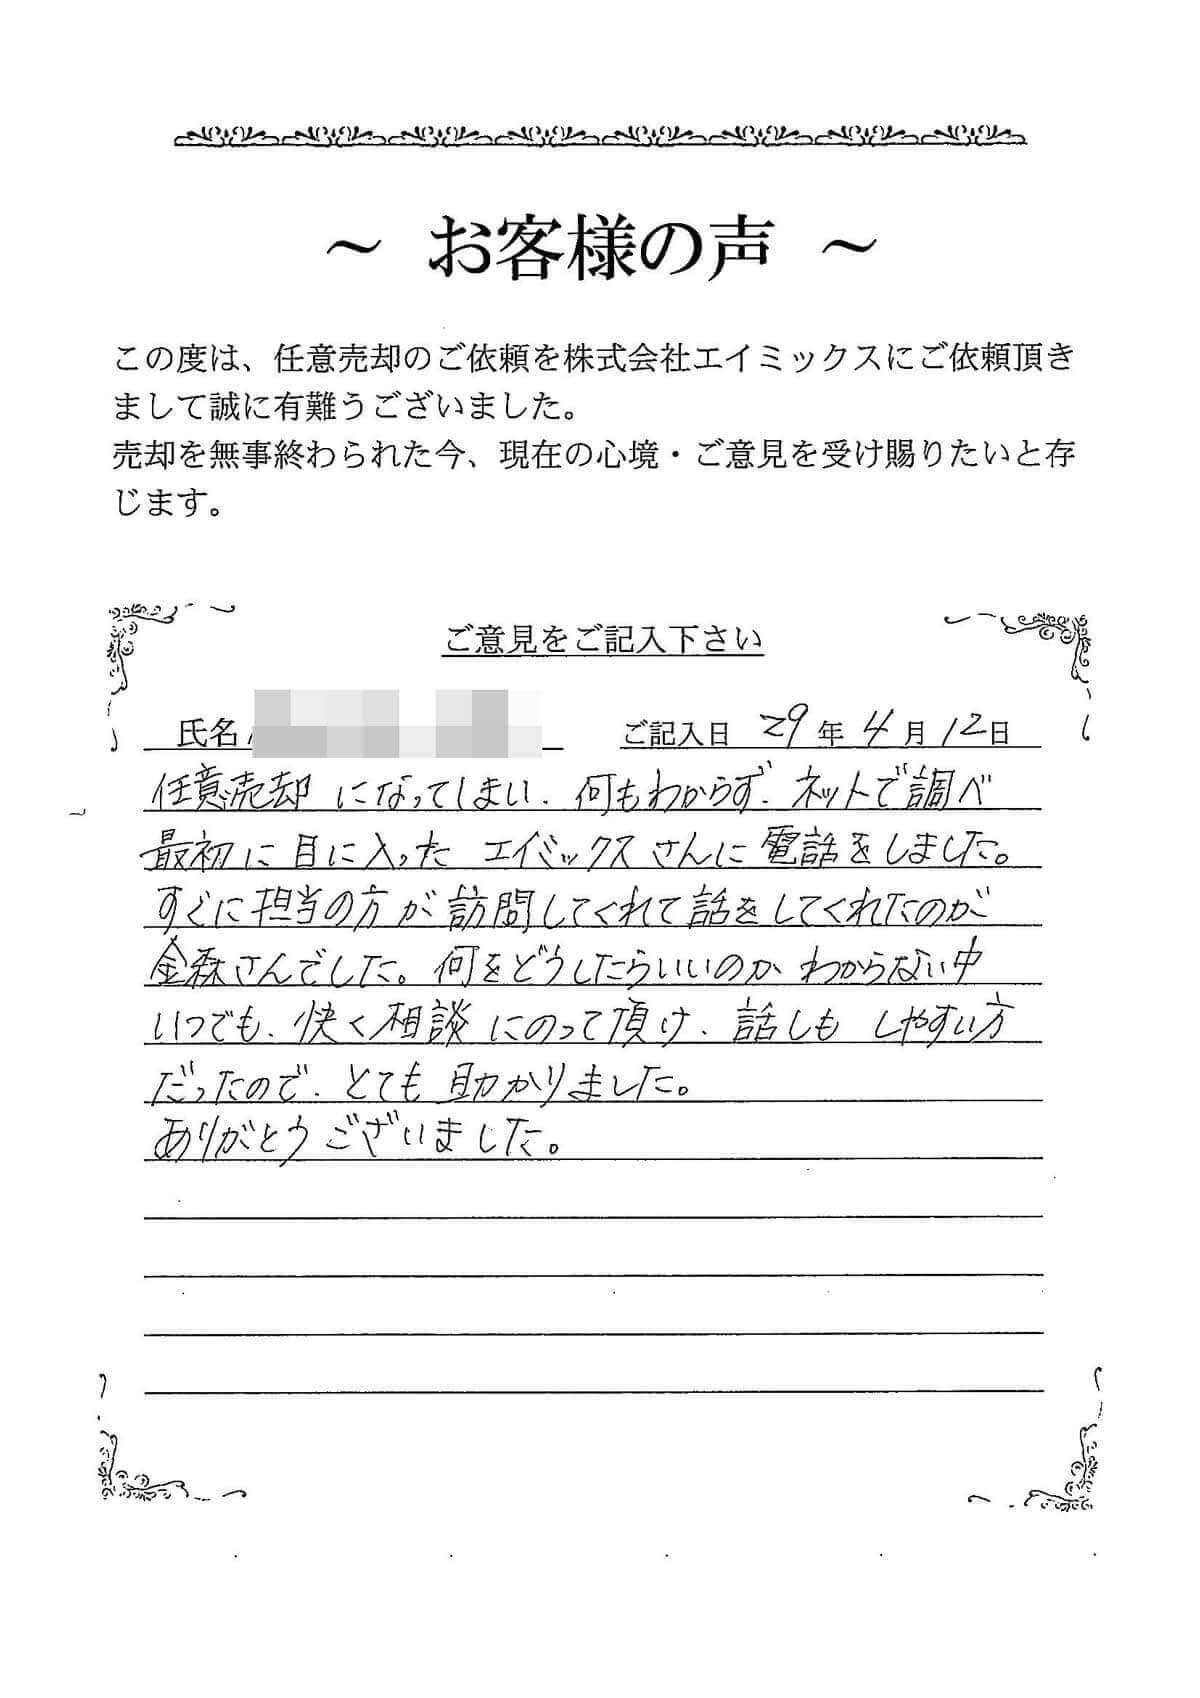 ～ お客様の声 ～
この度は、任意売却のご依頼を株式会社エイミックスにご依頼頂き
まして誠に有難うございました。
売却を無事終わられた今、現在の心境・ご意見を受け賜りたいと存
じます。
ご意見をご記入下さい
氏名 ご記入日 29年4月12日
任意売却になってしまい、何もわからず、ネットで調べ
最初に目に入ったエイミックスさんに電話をしました。
すぐに担当の方が訪問してくれて話をしてくれたのが
金森さんでした。何をどうしたらいいのかわからない中
いつでも、快く相談にのって頂け、話しもしやすい方
だったので、とても助かりました。
ありがとうございました。